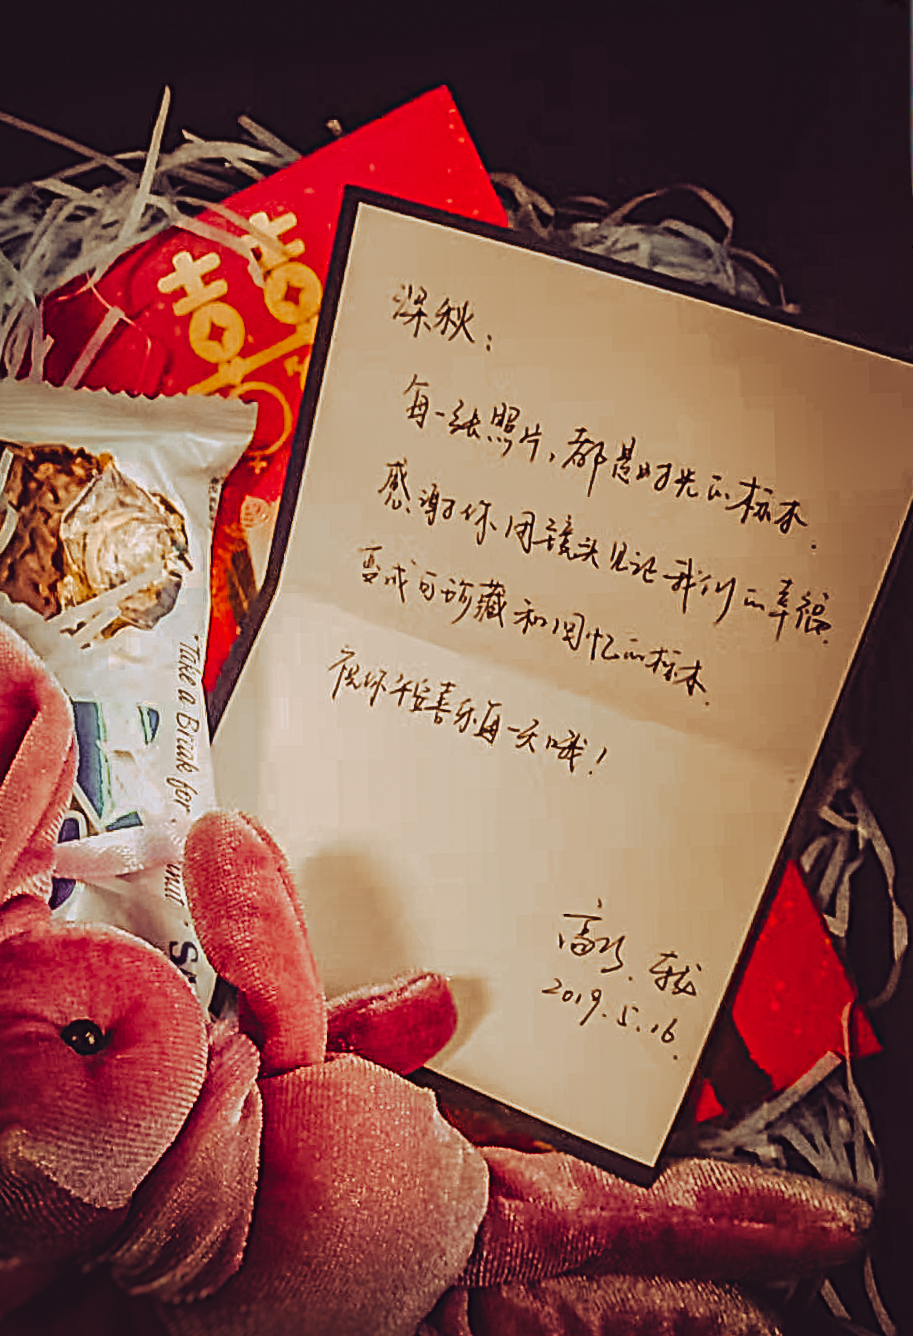 囍
深秋：
每一张照片，都是时光的标本.
感谢你用镜头见证我们的幸福.
变成可珍藏和回忆的标本.
祝你平安喜乐每一天哦！
2019.5.16.
Take a Break for